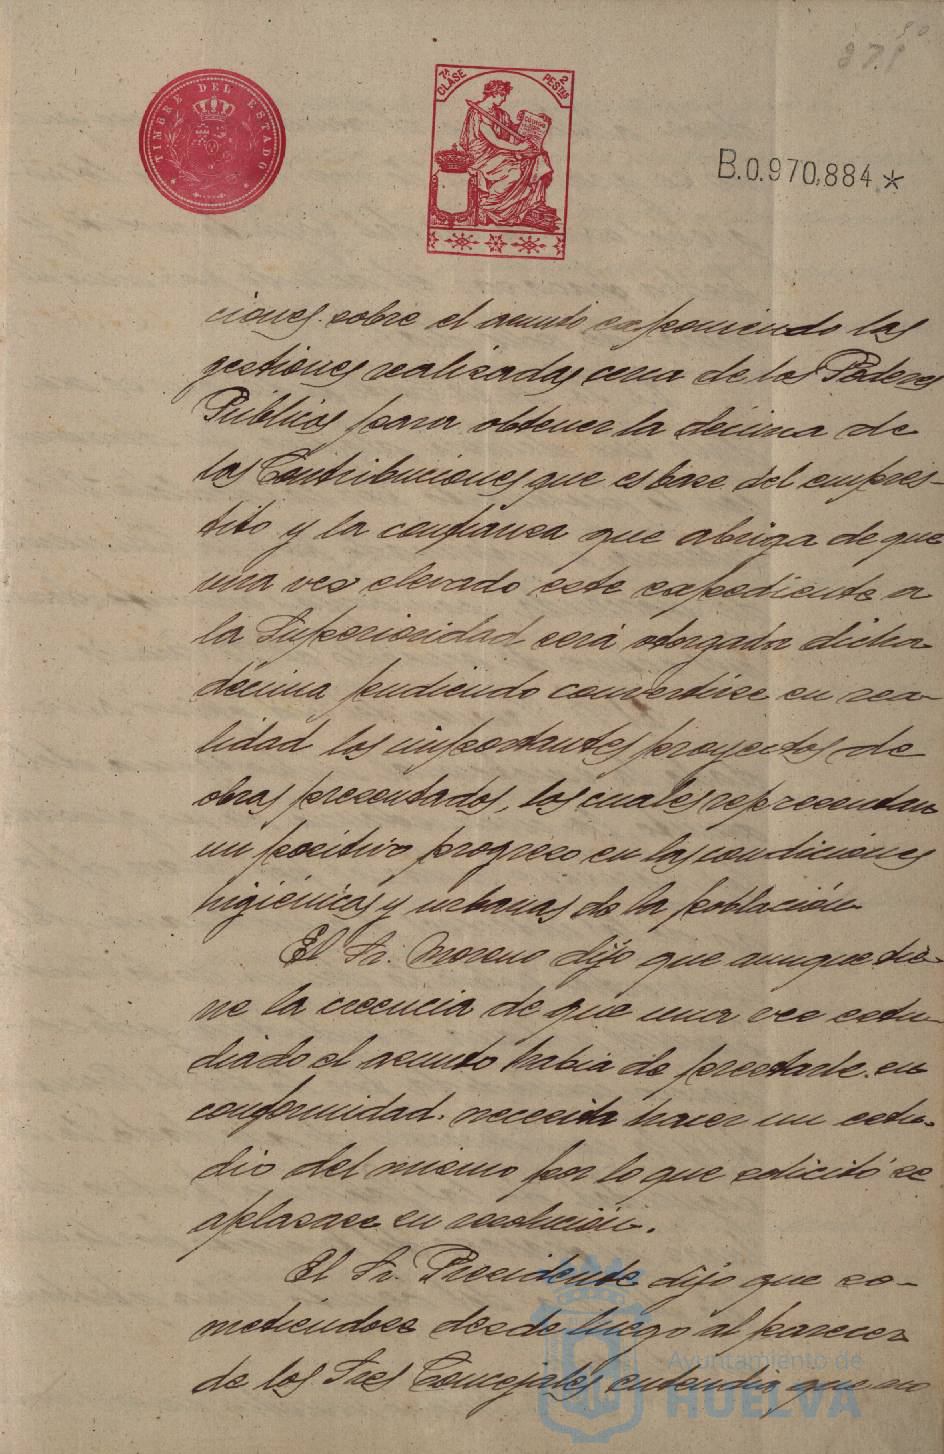 TIMBRE DEL ESTADO
7ª CLASE
2 PESTAS
B.0.970,884 *
ciones sobre el asunto exponiendo las
gestiones realizadas cerca de los Poderes
Publicos para obtener la décima de
las Contribuciones que es base del emprés-
tito y la confianza que abriga de que
una vez elevado este expediente a
la Superioridad será otorgada dicha
décima pudiendo convertirse en rea-
lidad los importantes proyectos de
obras presentados, los cuales representan
un positivo progreso en las condiciones
higiénicas y urbanas de la población
El Sr. Moreno dijo que aunque tie-
ne la creencia de que una vez estu-
diado el asunto habia de prestarle su
conformidad, necesita hacer un estu-
dio del mismo por lo que solicitó se
aplazase su resolución.
El Sr. Presidente dijo que so-
metiendose desde luego al parecer
de los Sres Concejales entendia que no
Ayuntamiento de
HUELVA